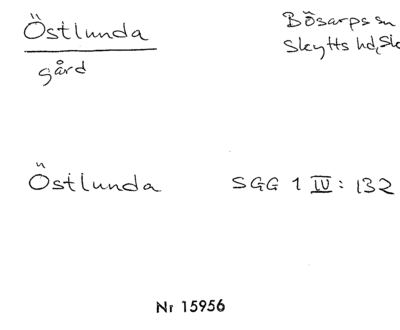 Östlunda
gård
Bösarps sn
Skytts hd, Sk
Östlunda
SGG 1 IV: 132
Nr 15956